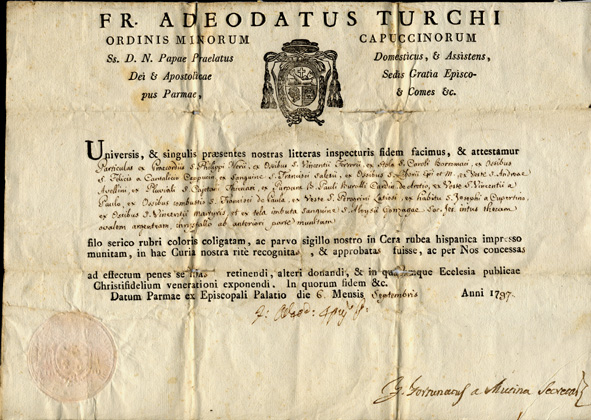 FR. ADEODATUS TURCHI
ORDINIS MINORUM CAPUCCINORUM
Ss. D. N. Papae Praelatus Domesticus, & Assistens,
Dei & Apostolicae Sedis Gratia Episco-
pus Parmae, & Comes &c.
Universis, & singulis praesentes nostras litteras inspecturis fidem facimus, & attestamur
Particulas ex Praecordiis S. Philippi Nerii, ex Ossibus S. Vincentii Ferrerii, ex Stola S. Caroli Borromaei, ex Ossibus
S. Felicis a Cantalicio, ex Sanguine S. Francisci Salesii, ex Ossibus S. et ex Veste S. Andreae
Avellini, ex Pluviali S. Cajetani ex Purpura B. Pauli Burali Cardin. de Aretio, ex Veste S. Vincentii a
Paulo, ex Ossibus combustis S. Francisci de Paula, ex Veste S. Peregrini Latiosi, ex habitu S. Josephi a Cupertino,
ex Ossibus S. martyris et ex tela imbuta sanguine S. Aloysii Gonzagae intus thecam
ovalem argenteam, crystallo ab anteriori parte munitam
filo serico rubri coloris coligatam, ac parvo sigillo nostro in Cera rubea hispanica impresso
munitam, in hac Curia nostra ritè recognitas, & approbatas fuisse, ac per Nos concessas
ad effectum penes se retinendi, alteri donandi, & in quacumque Ecclesia publicae
Christifidelium venerationi exponendi. In quorum fidem &c.
Datum Parmae ex Episcopali Palatio die 6 Mensis Septembris Anni 1797.
F. Fortunatus a Mutina Secret.